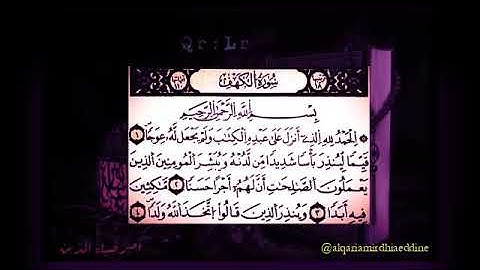 Qr:Lr
سُورَةُ الكَهْفِ
بِسْمِ اللَّهِ الرَّحْمَٰنِ الرَّحِيمِ
۞ الْحَمْدُ لِلهِ الذِےٓ أَنزَلَ عَلَىٰ عَبْدِهِ الْكِتَٰبَ وَلَمْ يَجْعَل لَّهُۥ عِوَجاً ١
قَيِّماً لِّيُنذِرَ بَأْساً شَدِيداً مِّن لَّدُنْهُ وَيُبَشِّرَ الْمُومِنِينَ الذِينَ
يَعْمَلُونَ الصَّٰلِحَٰتِ أَنَّ لَهُمُۥٓ أَجْراً حَسَناً ٢ مَّٰكِثِينَ
فِيهِ أَبَداً ٣ وَيُنذِرَ الذِينَ قَالُواْ اتَّخَذَ اللَّهُ وَلَداً ٤
أمير ضياء الدين
@alqariamirdhiaeddine